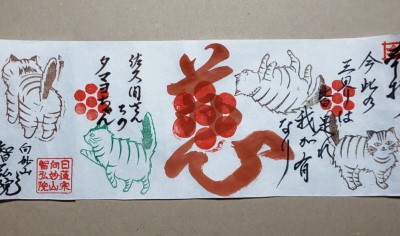 今此の
三界は
皆是れ
我が有
なり
慈
佐久間さん
ちの
タマヨちゃん
向妙山
智弘院
日蓮宗
向妙山
智弘院